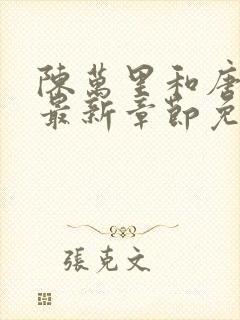 陳萬里和唐
最新章節免
張克文